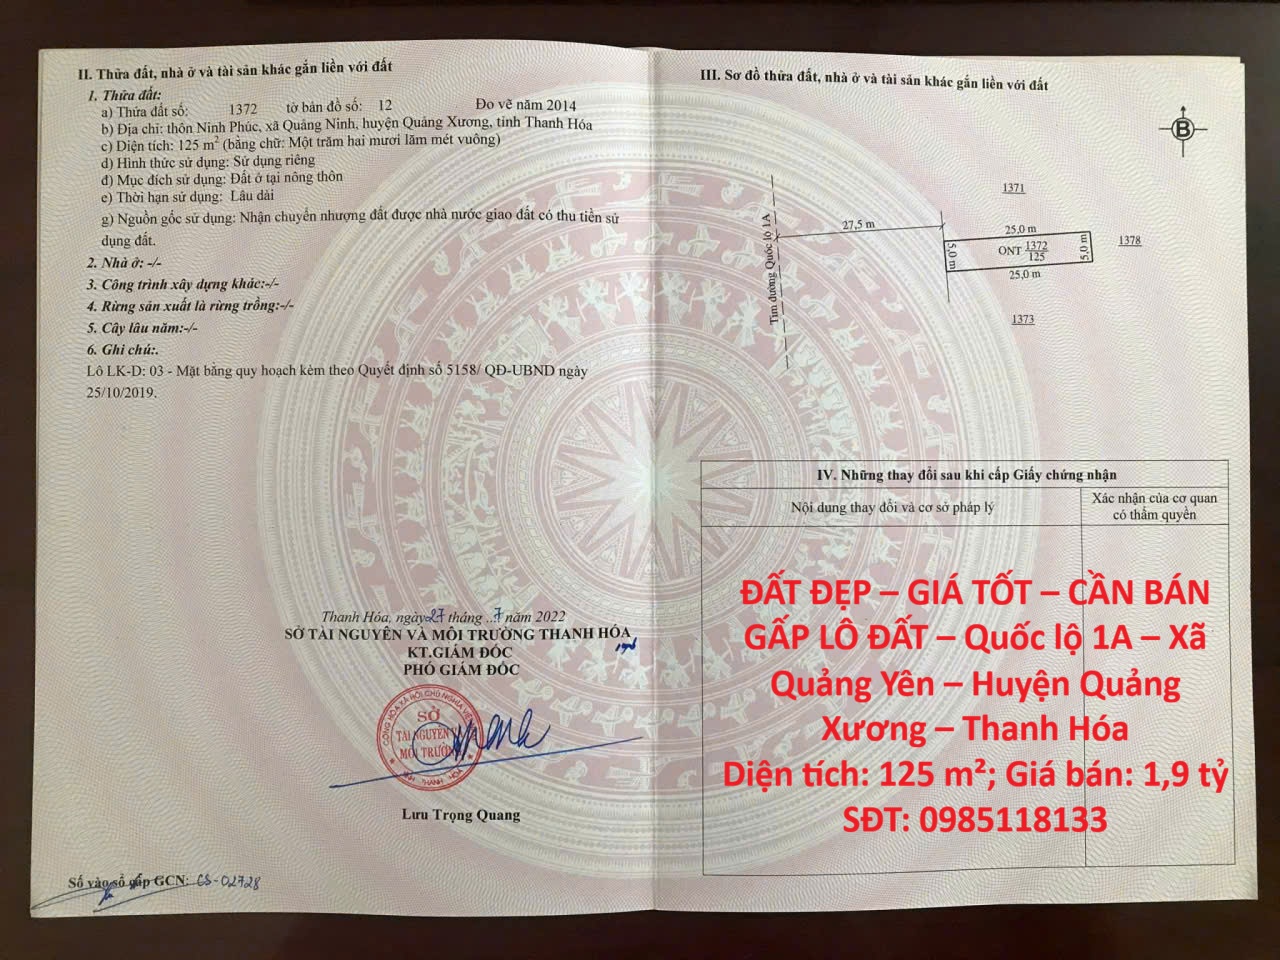 II. Thửa đất, nhà ở và tài sản khác gắn liền với đất
1. Thửa đất:
a) Thửa đất số: 1372 tờ bản đồ số: 12 Đo vẽ năm 2014
b) Địa chỉ: thôn Ninh Phúc, xã Quảng Ninh, huyện Quảng Xương, tỉnh Thanh Hóa
c) Diện tích: 125 m² (bằng chữ: Một trăm hai mươi lăm mét vuông)
d) Hình thức sử dụng: Sử dụng riêng
đ) Mục đích sử dụng: Đất ở tại nông thôn
e) Thời hạn sử dụng: Lâu dài
g) Nguồn gốc sử dụng: Nhận chuyển nhượng đất được nhà nước giao đất có thu tiền sử
dụng đất.
2. Nhà ở: -/-
3. Công trình xây dựng khác:-/-
4. Rừng sản xuất là rừng trồng:-/-
5. Cây lâu năm:-/-
6. Ghi chú:.
Lô LK-D: 03 - Mặt bằng quy hoạch kèm theo Quyết định số 5158/ QĐ-UBND ngày
25/10/2019.
Thanh Hóa, ngày 27 tháng ..7 năm 2022
SỞ TÀI NGUYÊN VÀ MÔI TRƯỜNG THANH HÓA
KT.GIÁM ĐỐC
PHÓ GIÁM ĐỐC
SỞ
TÀI NGUYÊN VÀ
MÔI TRƯỜNG
Lưu Trọng Quang
Số vào sổ cấp GCN: CS-02728
III. Sơ đồ thửa đất, nhà ở và tài sản khác gắn liền với đất
B
1371
Tim đường Quốc lộ 1A
27,5 m
25,0 m
5,0 m
ONT 1372
125
5,0 m
1378
25,0 m
1373
IV. Những thay đổi sau khi cấp Giấy chứng nhận
Nội dung thay đổi và cơ sở pháp lý
Xác nhận của cơ quan
có thẩm quyền
ĐẤT ĐẸP – GIÁ TỐT – CẦN BÁN
GẤP LÔ ĐẤT – Quốc lộ 1A – Xã
Quảng Yên – Huyện Quảng
Xương – Thanh Hóa
Diện tích: 125 m²; Giá bán: 1,9 tỷ
SĐT: 0985118133